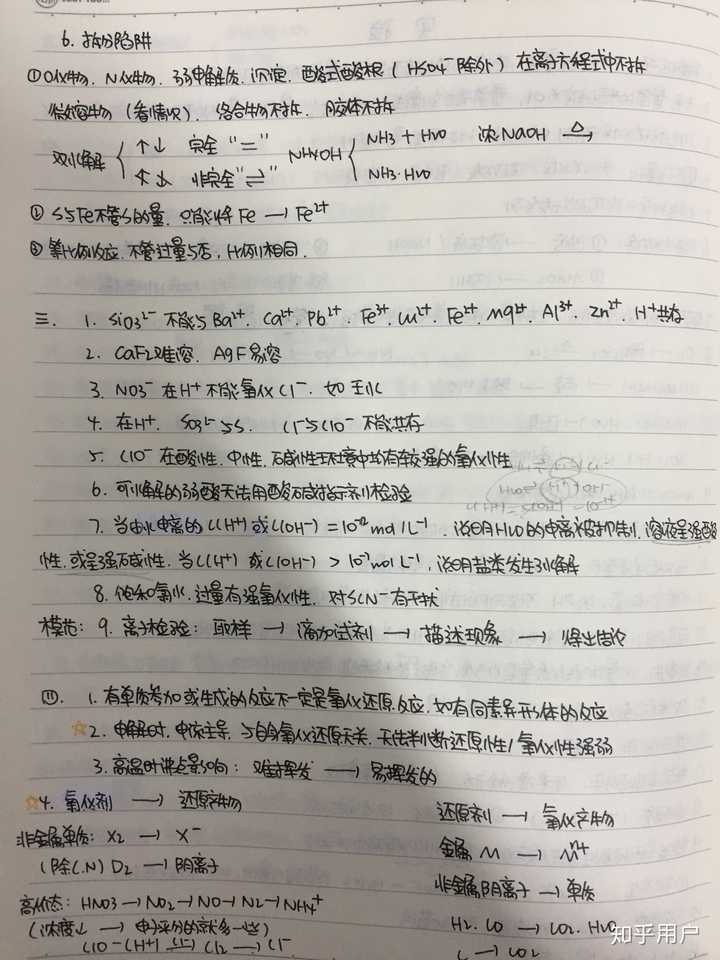 6. 拆分陷阱
①O化物、N化物、弱电解质、沉淀、酸式酸根（HSO4⁻除外）在离子方程式中不拆
微溶物（看情况）、络合物不拆、胶体不拆
双水解 { ↑↓ 完全 “=” NH4OH { NH3 + H2O 浓NaOH △→
↑↓ 非完全“⇌” NH3·H2O
② S与Fe不管S的量，只能将 Fe → Fe²⁺
③ 氧化性反应，不管过量与否，比例相同．
三. 1. SiO3²⁻ 不能与 Ba²⁺、Ca²⁺、Pb²⁺、Fe³⁺、Cu²⁺、Fe²⁺、Mg²⁺、Al³⁺、Zn²⁺、H⁺共存
2. CaF2难溶、AgF易溶
3. NO3⁻ 在H⁺不能氧化Cl⁻．如王水
4. 在H⁺、SO3²⁻与S、Cl⁻与ClO⁻ 不能共存
5. ClO⁻ 在酸性、中性、碱性环境中均有较强的氧化性
6. 可水解的弱酸无法用酸碱指示剂检验
7. 当由水电离的C(H⁺)或C(OH⁻) = 10⁻¹² mol L⁻¹．说明H2O的电离被抑制，溶液呈强酸
性．或呈强碱性．当C(H⁺) 或C(OH⁻) > 10⁻⁷ mol L⁻¹，说明盐类发生水解
8. 饱和氯水、过量有强氧化性．对SCN⁻有干扰
模范：9. 离子检验：取样 → 滴加试剂 → 描述现象 → 得出结论
四. 1. 有单质参加或生成的反应不一定是氧化还原反应，如有同素异形体的反应
☆2. 电解时，电源主导，与自身氧化还原无关，无法判断还原性/氧化性强弱
3. 高温时沸点影响：难挥发 → 易挥发的
☆4. 氧化剂 → 还原产物 还原剂 → 氧化产物
非金属单质：X2 → X⁻ 金属 M → Mⁿ⁺
（除C.N）O2 → 阴离子 非金属阴离子 → 单质
高价态：HNO3 → NO2 → NO → N2 → NH4⁺ H2、CO → CO2、H2O
（浓度↓ → 电子平分的就多一些） C → CO2
ClO⁻(H⁺) → Cl2 → Cl⁻
知乎用户